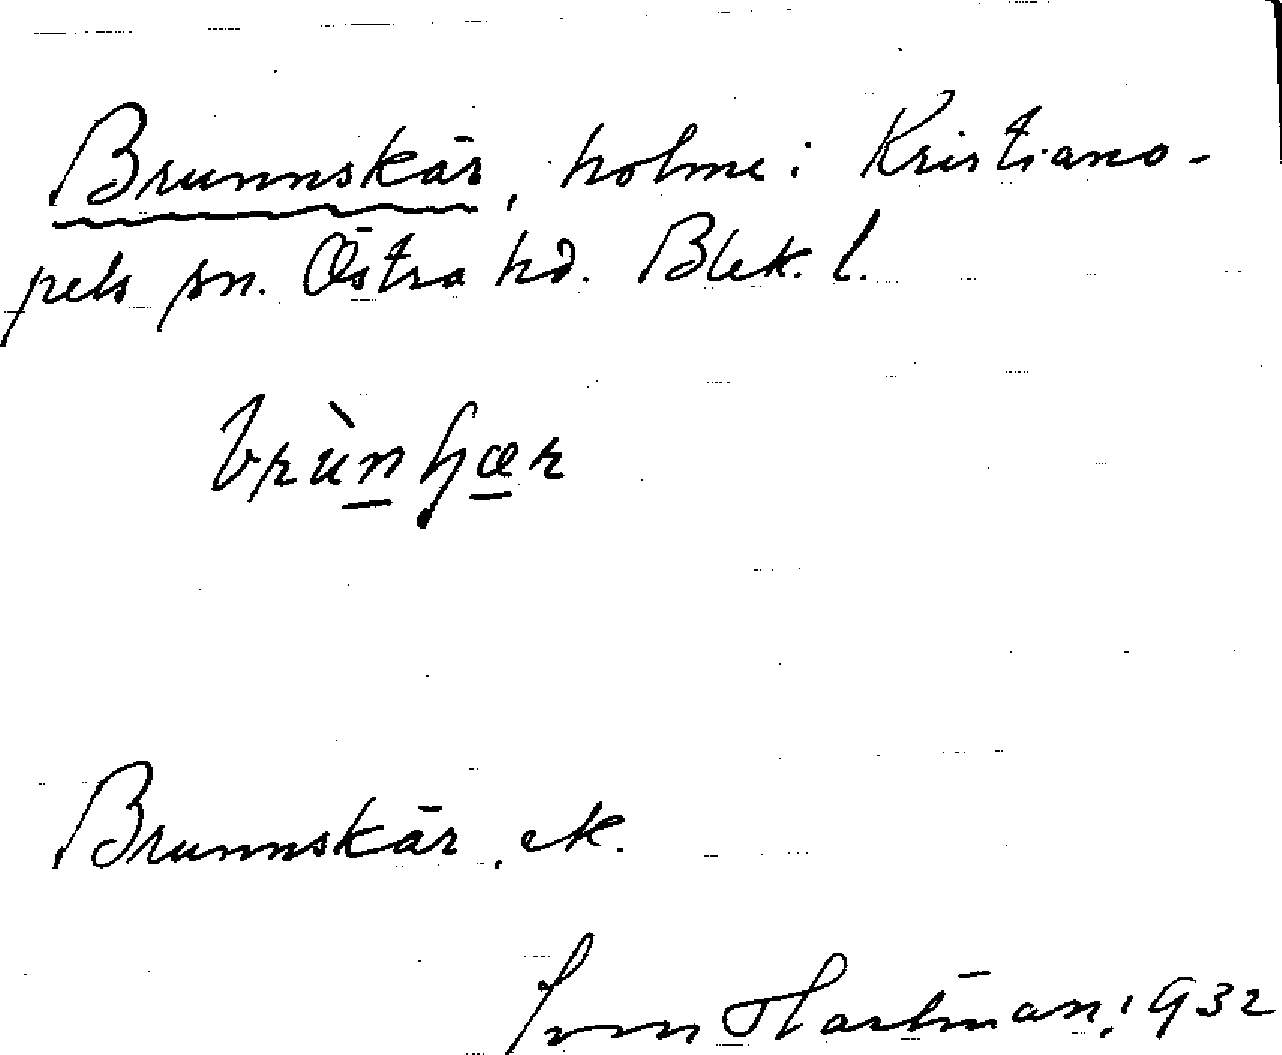 Brunnskär, holme i Kristiano-
pels sn. Östra hd. Blek. l.
Brunnskär, ek.
Ivan Hartman, 1932